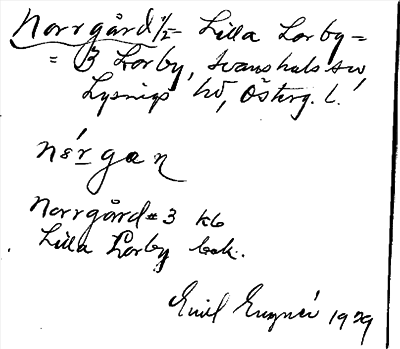 Norrgård 1/2 Lilla Lorby =
= B Lorby, Svanshals sn,
Lysings hd, Österg. l.
nǿrgan
Norrgård 3 kb
Lilla Lorby bok.
Emil 1929